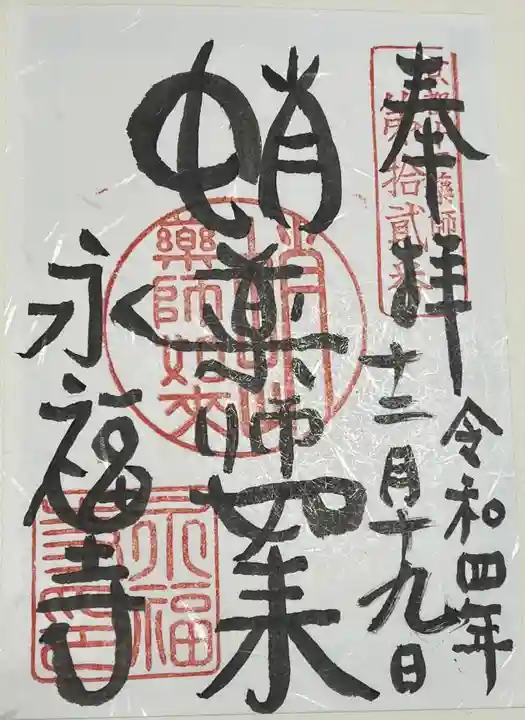 奉拝
令和四年
十二月十九日
蛸薬師如来
永福寺
第拾貳番
薬師如来
永福